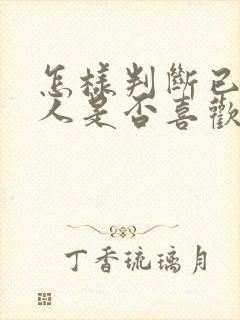 怎樣判斷已
人是否喜歡
丁香琉璃月